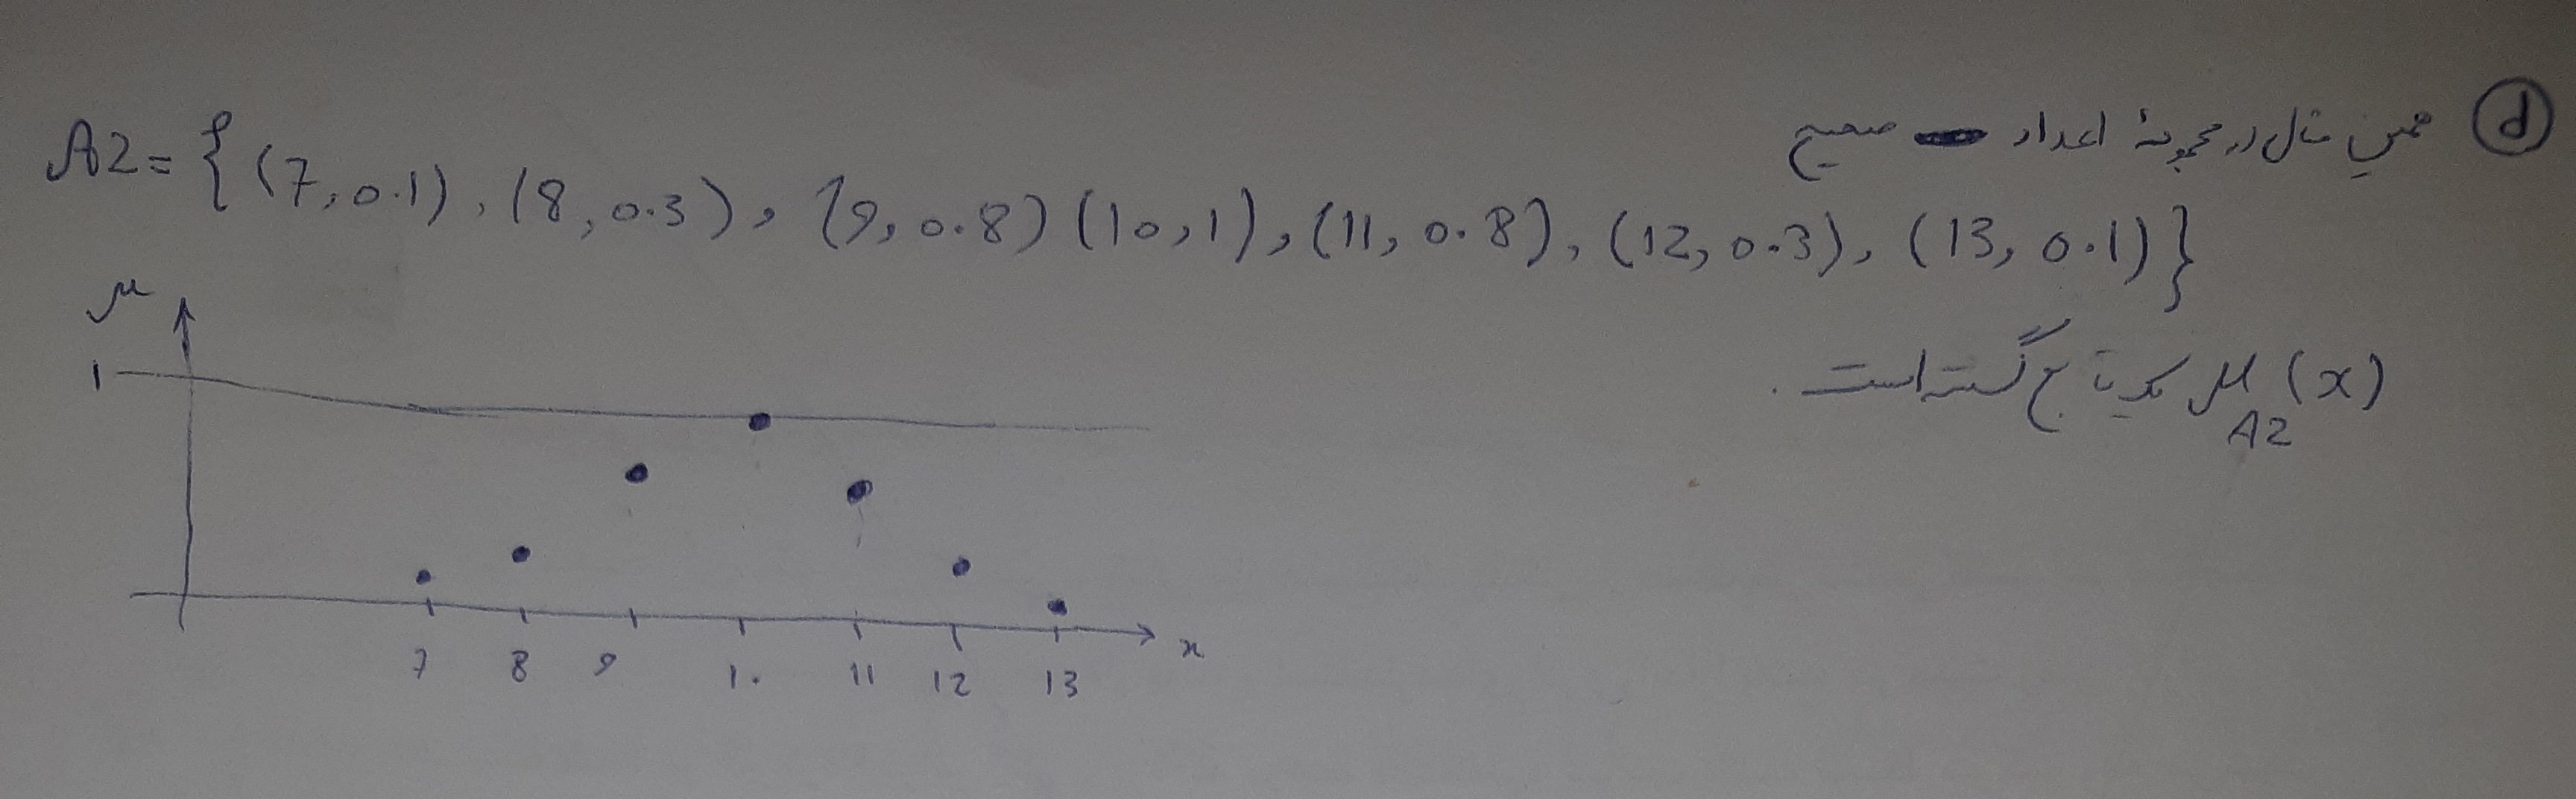 d همین مثال در مجموعهٔ اعداد صحیح
A2 = {(7, 0.1), (8, 0.3), (9, 0.8) (10, 1), (11, 0.8), (12, 0.3), (13, 0.1)}
μ A2 (x) یک تابع گسسته است.
μ
1
x
7 8 9 1. 11 12 13